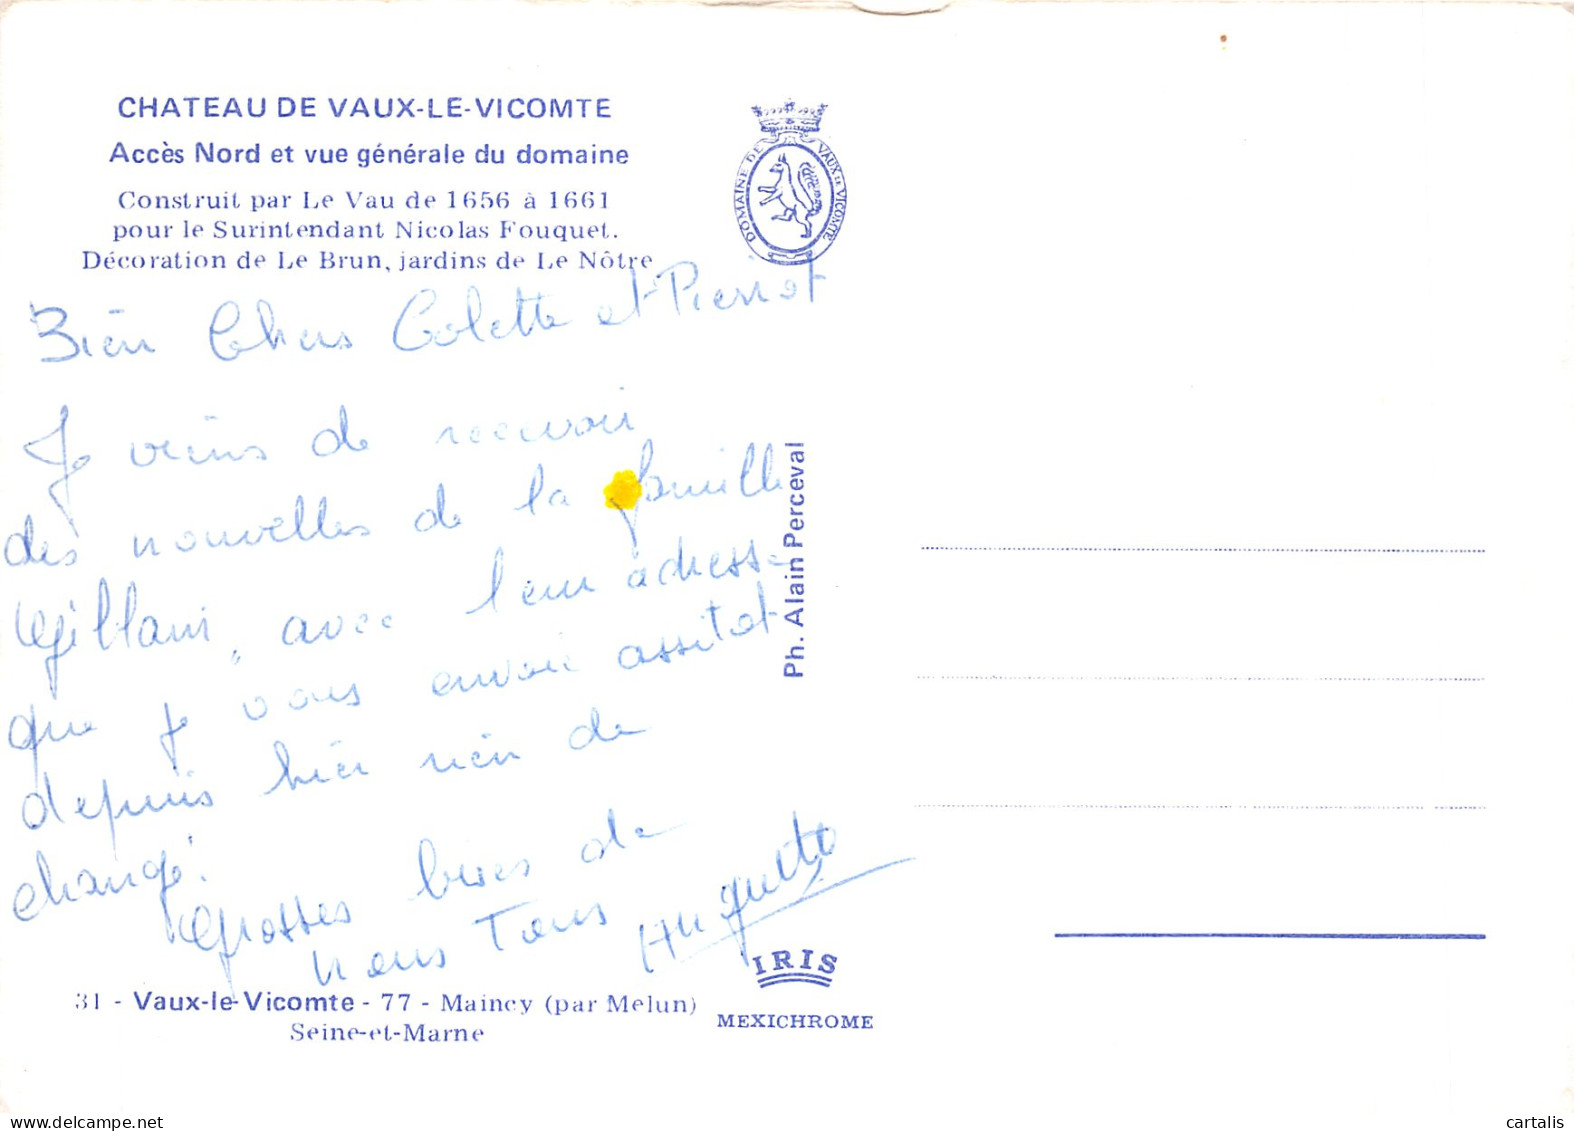 CHATEAU DE VAUX-LE-VICOMTE
Accès Nord et vue générale du domaine
Construit par Le Vau de 1656 à 1661
pour le Surintendant Nicolas Fouquet.
Décoration de Le Brun, jardins de Le Nôtre
DOMAINE DE VAUX LE VICOMTE
Bien Chers Colette et Pierrot
Je viens de recevoir
des nouvelles de la famille
avec leur adresse
que je vous envoie assitot
depuis hier rien de
changé.
Grosses bises de
nous Tous Huguette
Ph. Alain Perceval
31 - Vaux-le-Vicomte - 77 - Maincy (par Melun)
Seine-et-Marne
IRIS
MEXICHROME
cartalis
delcampe.net